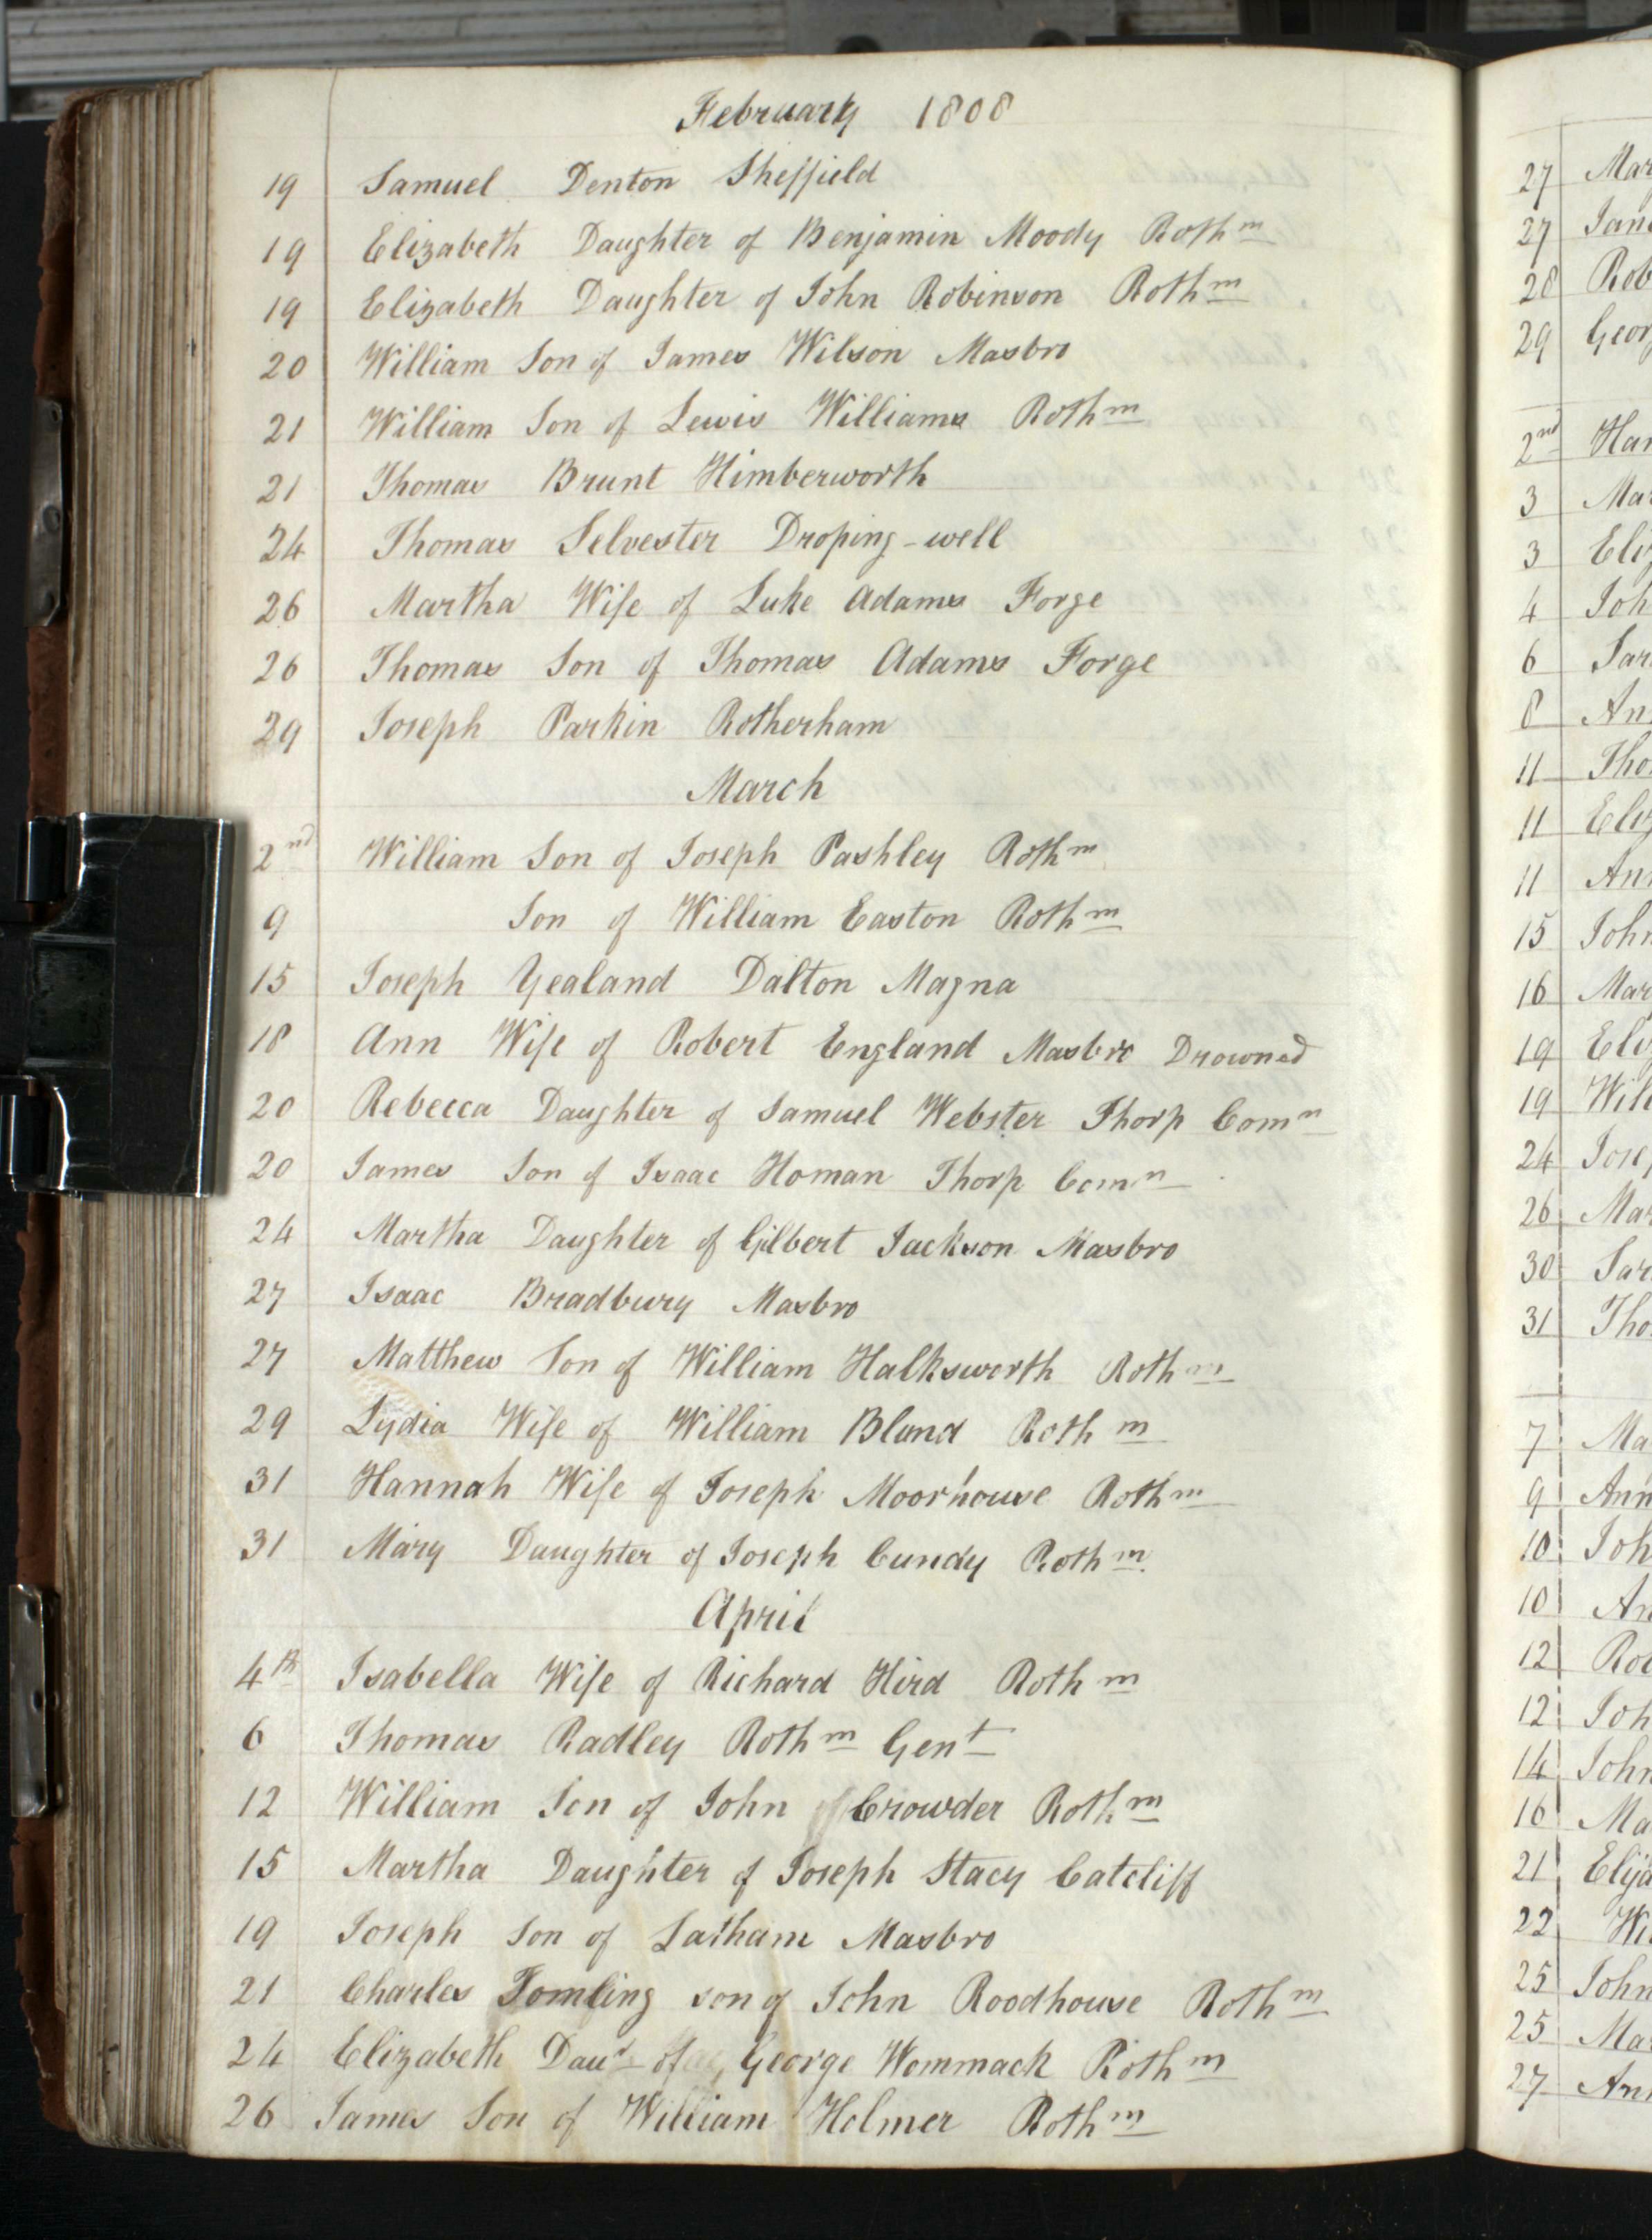 February 1808
19 Samuel Denton Sheffield
19 Elizabeth Daughter of Benjamin Moody Rothm
19 Elizabeth Daughter of John Robinson Rothm
20 William Son of James Wilson Masbro
21 William Son of Lewis Williams Rothm
21 Thomas Brunt Himberworth
24 Thomas Selvester Droping-well
26 Martha Wife of Luke Adams Forge
26 Thomas Son of Thomas Adams Forge
29 Joseph Parkin Rotherham
March
2nd William Son of Joseph Pashley Rothm
9 Son of William Easton Rothm
15 Joseph Yealand Dalton Magna
18 Ann Wife of Robert England Masbro Drowned
20 Rebecca Daughter of Samuel Webster Thorp Comn
20 James Son of Isaac Homan Thorp Comn
24 Martha Daughter of Gilbert Jackson Masbro
27 Isaac Bradbury Masbro
27 Matthew Son of William Halksworth Rothm
29 Lydia Wife of William Bland Rothm
31 Hannah Wife of Joseph Moorhouse Rothm
31 Mary Daughter of Joseph Cundy Rothm
April
4th Isabella Wife of Richard Hird Rothm
6 Thomas Radley Rothm Gent
12 William Son of John Crowder Rothm
15 Martha Daughter of Joseph Stacy Catcliff
19 Joseph Son of Latham Masbro
21 Charles Tomling son of John Roodhouse Rothm
24 Elizabeth Daur of George Wommack Rothm
26 James Son of William Holmer Rothm
27
27
28
29
2nd
3
3
4
6
8
11
11
11
15 John
16
19
19
24
26
30
31
7
9
10
10
12
12
14 John
16
21
22
25 John
25
27